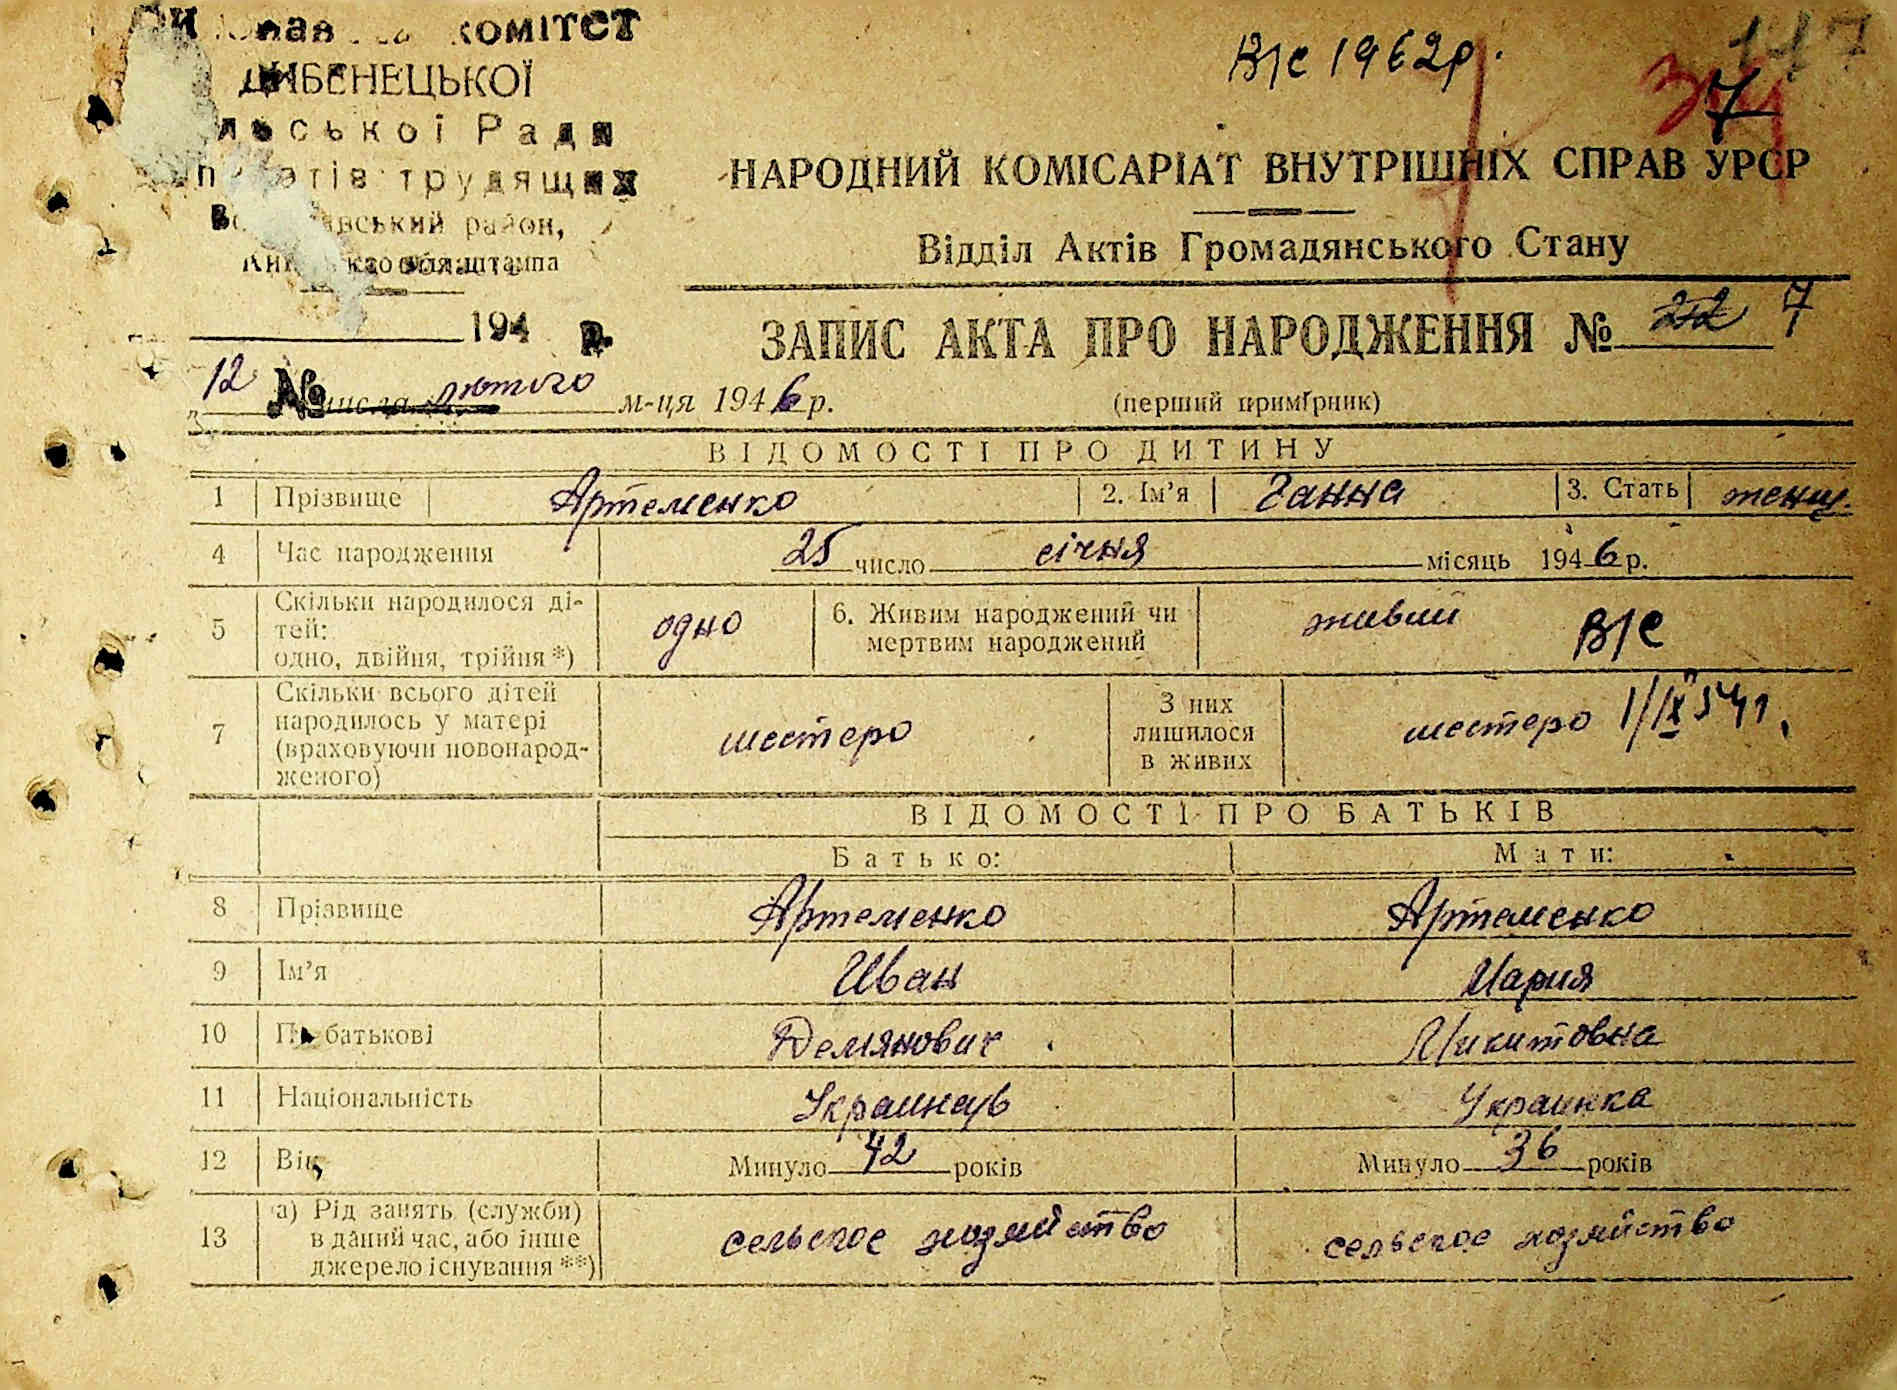 комітет
ДИБЕНЕЦЬКОЇ
льської Ради
трудящих
вський район,
штампа
194 р.
В/с 1962р.
117
7
НАРОДНИЙ КОМІСАРІАТ ВНУТРІШНІХ СПРАВ УРСР
Відділ Актів Громадянського Стану
ЗАПИС АКТА ПРО НАРОДЖЕННЯ № 22 7
12 № числа лютого м-ця 1946 р.
(перший примірник)
ВІДОМОСТІ ПРО ДИТИНУ
1 Прізвище Артеменко 2. Ім’я Ганна 3. Стать женщ.
4 Час народження 25 число січня місяць 1946 р.
5 Скільки народилося ді-
тей:
одно, двійня, трійня *) одно 6. Живим народжений чи
мертвим народжений живий В/с
7 Скільки всього дітей
народилось у матері
(враховуючи новонарод-
женого) шестеро З них
лишилося
в живих шестеро
ВІДОМОСТІ ПРО БАТЬКІВ
Батько: Мати:
8 Прізвище Артеменко Артеменко
9 Ім’я Иван Мария
10 По батькові Демянович Микитовна
11 Національність Украинец Украинка
12 Вік Минуло 42 років Минуло 36 років
13 а) Рід занять (служби)
в даний час, або інше
джерело існування **) сельское хозяйство сельское хозяйство